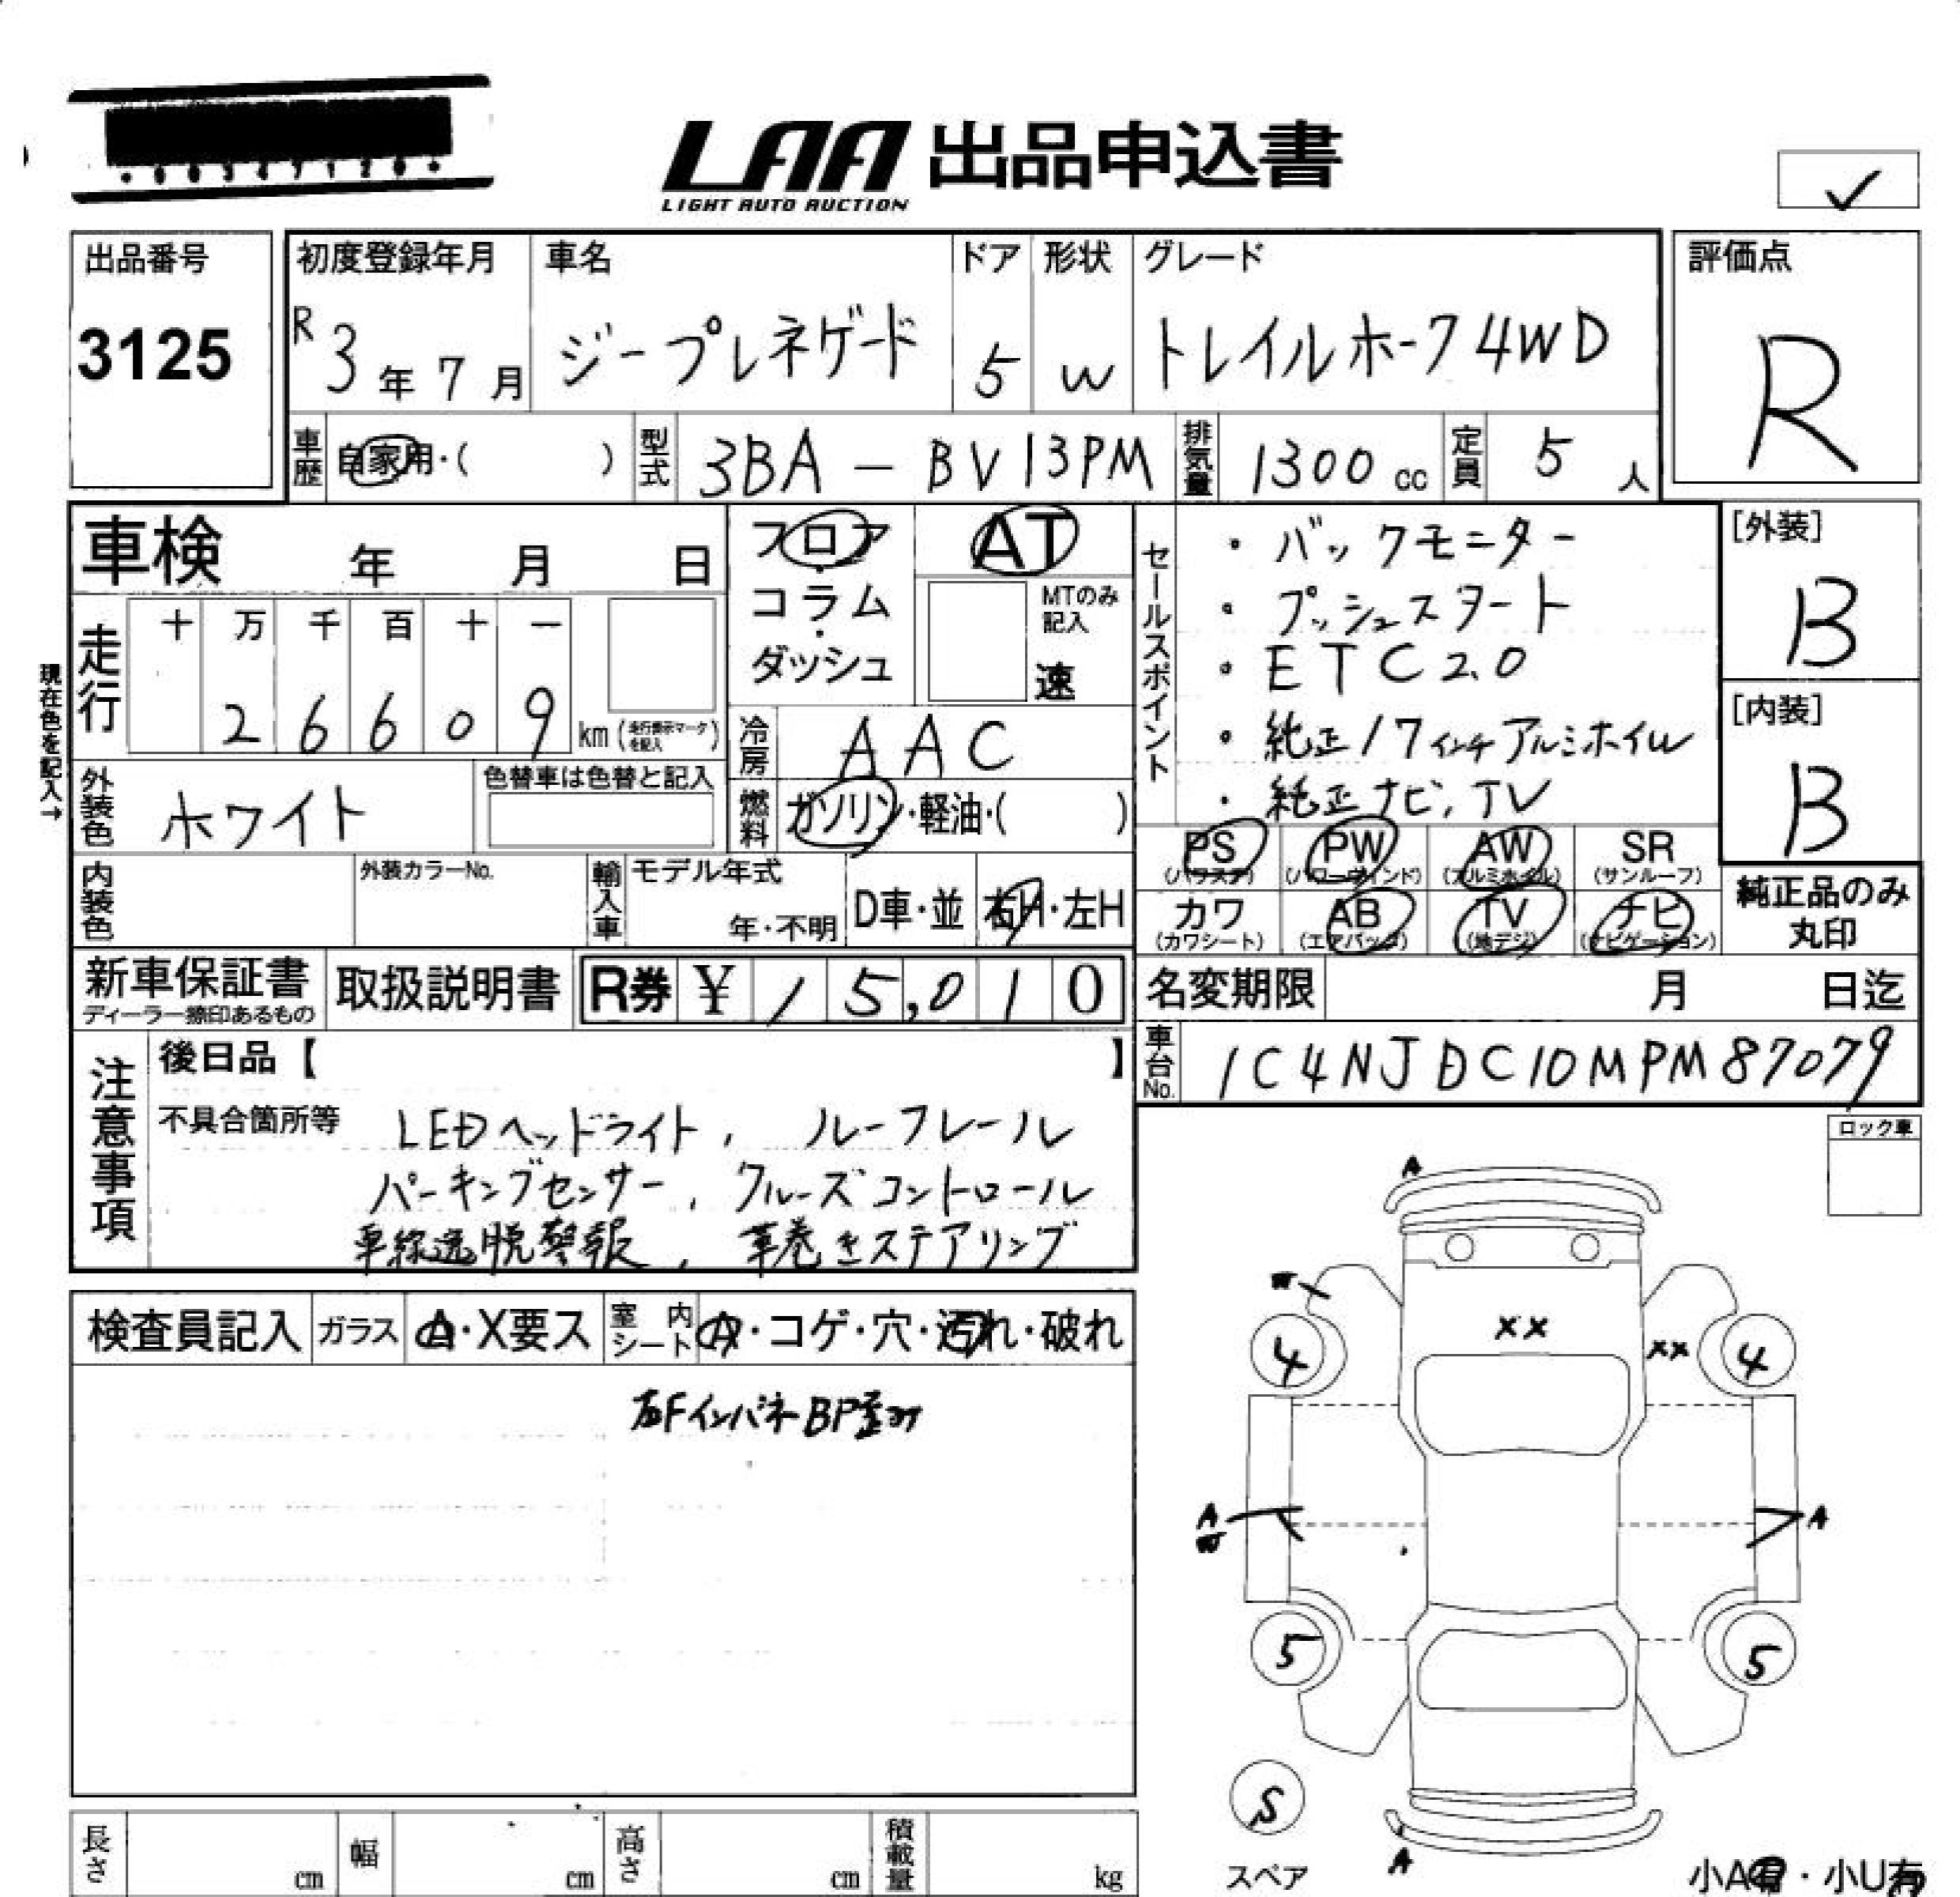 LAA 出品申込書
LIGHT AUTO AUCTION
✓
出品番号
3125
初度登録年月
R3年7月
車名
ジープレネゲード
ドア
5
形状
W
グレード
トレイルホーク4WD
評価点
R
車歴
自家用・( )
型式
3BA-BV13PM
排気量
1300cc
定員
5人
車検 年 月 日
フロア・コラム・ダッシュ
AT
MTのみ記入
速
セールスポイント
・バックモニター
・プッシュスタート
・ETC2.0
・純正17インチアルミホイル
・純正ナビ,TV
[外装]
B
[内装]
B
現在色を記入→
走行
十 万 千 百 十 一
2 6 6 0 9 km (走行表示マークを記入)
冷房
AAC
外装色
ホワイト
色替車は色替と記入
燃料
ガソリン・軽油・( )
PS PW AW SR
(パワステ) (パワーウインド) (アルミホイル) (サンルーフ)
カワ AB TV ナビ
(カワシート) (エアバッグ) (地デジ) (ナビゲーション)
純正品のみ
丸印
内装色
外装カラーNo.
輸入車
モデル年式
年・不明
D車・並
右H・左H
新車保証書
ディーラー捺印あるもの
取扱説明書
R券 ¥ 15,010
名変期限 月 日迄
車台No.
1C4NJDC10MPM87079
注意事項
後日品【 】
不具合箇所等
LEDヘッドライト, ルーフレール
パーキングセンサー, クルーズコントロール
車線逸脱警報, 革巻きステアリング
ロック車
検査員記入
ガラス
A・X要ス
室内シート
A・コゲ・穴・汚れ・破れ
FインパネBP歪み
A
W
XX
XX
4
4
A
W
A
5
5
S
スペア
A
小A有・小U有
長さ cm
幅 cm
高さ cm
積載量 kg